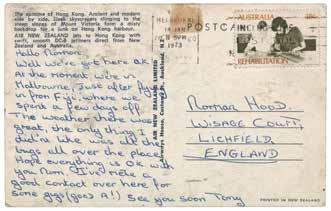 The epitome of Hong Kong. Ancient and modern
side by side. Sleek skyscrapers climbing to the
steep slopes of Mount Victoria form a dizzy
backdrop for a junk on Hong Kong harbour.
AIR NEW ZEALAND jets to Hong Kong with
swift, smooth DC-8 jetliners direct from New
Zealand and Australia.
Hello Roman.
Well we've got here ok.
At the moment we're in
Melbourne, Just after flying
in from Fiji, where we
spent a few days off.
The weather there was
great, the only thing I
didn't like was all the
bugs all over the place.
Hope everything is OK with
you Rom. I've made a
good contact over here for
some guys (goes A!) See you soon Tony
AIR NEW ZEALAND LIMITED
Airways House, Auckland, N.Z.
POSTCARD
MELBOURNE
1973
AUSTRALIA
REHABILITATION
Roman Hood.
WISAGE COURT,
LICHFIELD,
ENGLAND
PRINTED IN NEW ZEALAND